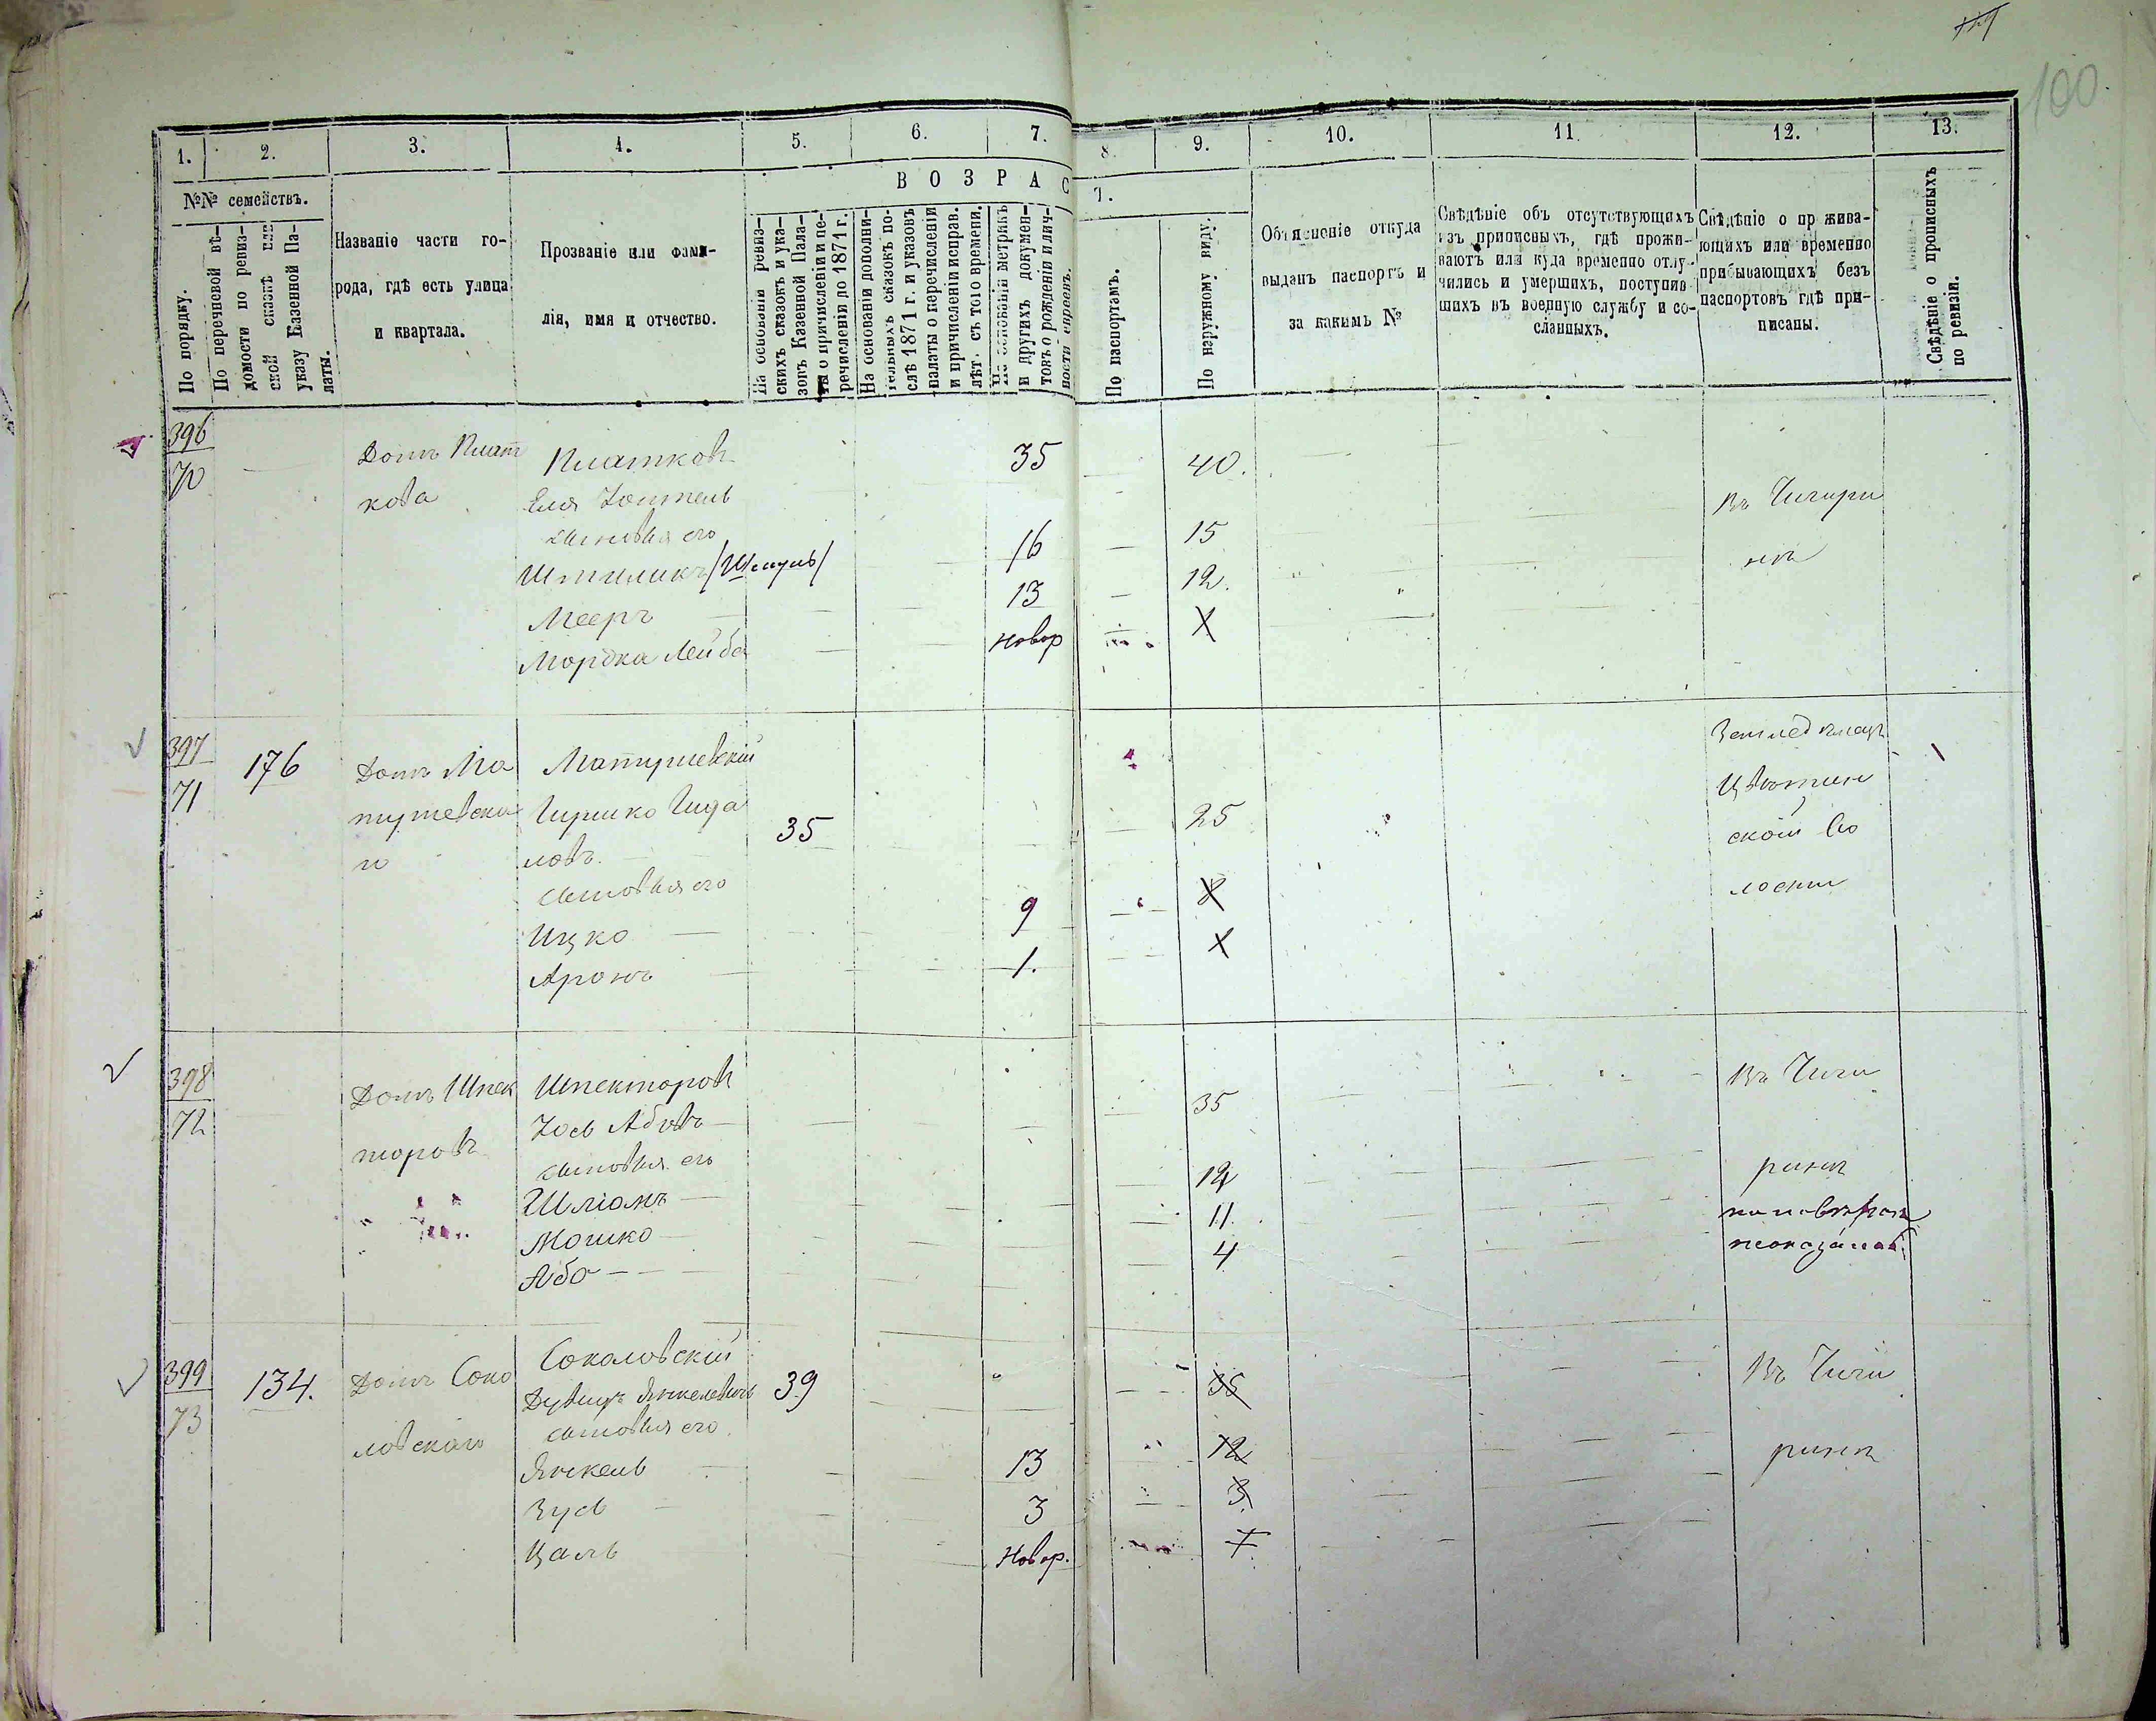 100
1. 2. 3. 4. 5. 6. 7. 8. 9. 10. 11. 12. 13.
ВОЗРАСТ.
№№ семействъ.
По порядку.
По перечневой вѣ-
домости по ревиз-
ской сказкѣ или
указу Казенной Па-
латы.
Названіе части го-
рода, гдѣ есть улица
и квартала.
Прозваніе или фами-
лія, имя и отчество.
На основаніи ревиз-
скихъ сказокъ и ука-
зовъ Казенной Пала-
ты о причисленіи и пе-
речисленіи до 1871 г.
На основаніи дополни-
тельныхъ сказокъ по-
слѣ 1871 г. и указовъ
палаты о перечисленіи
и причисленіи исправ.
лѣт. съ того времени.
На основаніи метрикъ
и другихъ докумен-
товъ о рожденіи и лич-
ности евреевъ.
По паспортамъ.
По наружному виду.
Объясненіе откуда
выданъ паспортъ и
за какимъ №
Свѣдѣніе объ отсутствующихъ
изъ приписныхъ, гдѣ прожи-
ваютъ или куда временно отлу-
чились и умершихъ, поступив-
шихъ въ военную службу и со-
сланныхъ.
Свѣдѣніе о прожива-
ющихъ или временно
прибывающихъ безъ
паспортовъ гдѣ при-
писаны.
Свѣдѣніе о прописныхъ
по ревизіи.
396
70
Домъ Плат
кова
Платковъ 35 40.
Еля
сыновья его
(Шмуль) 16 15
Мееръ 13 12.
Мордка Лейба Новор X
Въ Чигири
нѣ
397
71
176
Домъ Ма
тушевска
го
Матушевскій
Гершко
35 25
сыновья его
Ицко 9
Аронъ 1. X
Цвѣтян
ской во
лости
398
72
Домъ Шпек
торовъ
Шпекторовъ
Іось Абовъ 35
сыновья его
Шліомъ 12
Мошко 11.
Або 4
Въ Чиги
ринѣ
399
73
134.
Домъ Соко
ловскаго
Соколовскій
Янкелевичъ 39 35
сыновья его
Янкель 13 12
Зусь 3 3
Цаль Новор. X
Въ Чиги
ринѣ